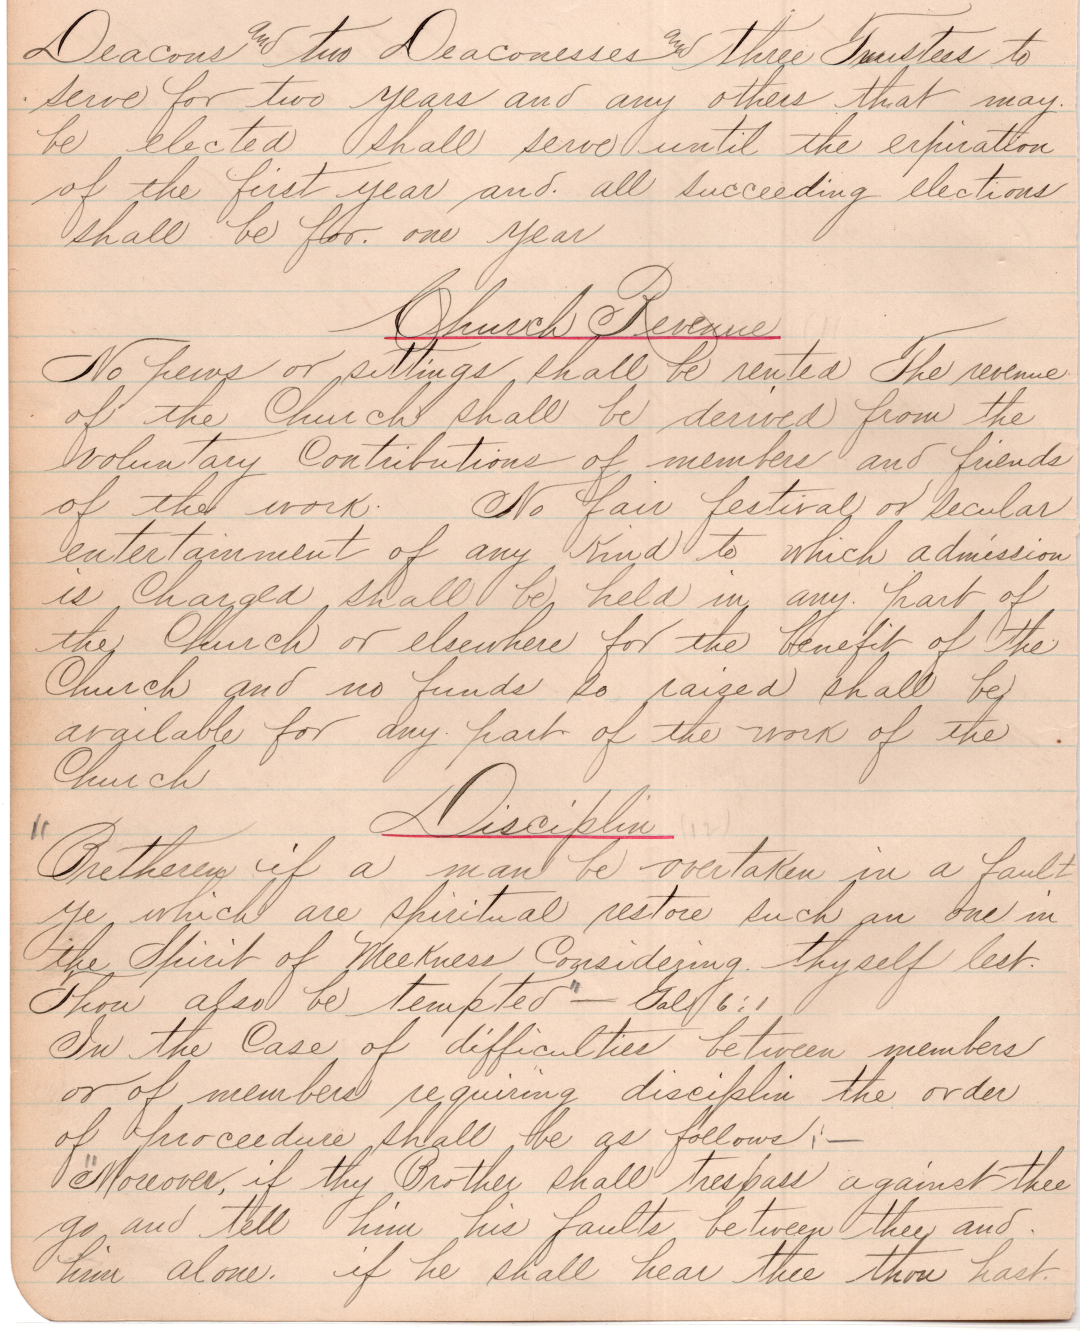 Deacons and two Deaconesses and three Trustees to
serve for two years and any others that may.
be elected shall serve until the expiration
of the first year and. all succeeding elections
shall be for. one year
Church Revenue
No pews or sittings shall be rented The revenue
of the Church shall be derived from the
voluntary Contributions of members and friends
of the work. No fair festival or secular
entertainment of any kind to which admission
is Charged shall be held in any. part of
the Church or elsewhere for the benefit of the
Church and no funds so raised shall be
available for any. part of the work of the
Church
Disciplin (12)
"Bretheren if a man be overtaken in a fault
ye which are spiritual restore such an one in
the Spirit of Meekness Considering. thyself lest.
Thou also be tempted" — Gal 6:1
In the Case of difficulties between members
or of members requiring disciplin the order
of proceedure shall be as follows:—
"Moreover, if thy Brother shall trespass against thee
go and tell him his faults between thee and.
him alone. if he shall hear thee thou hast.